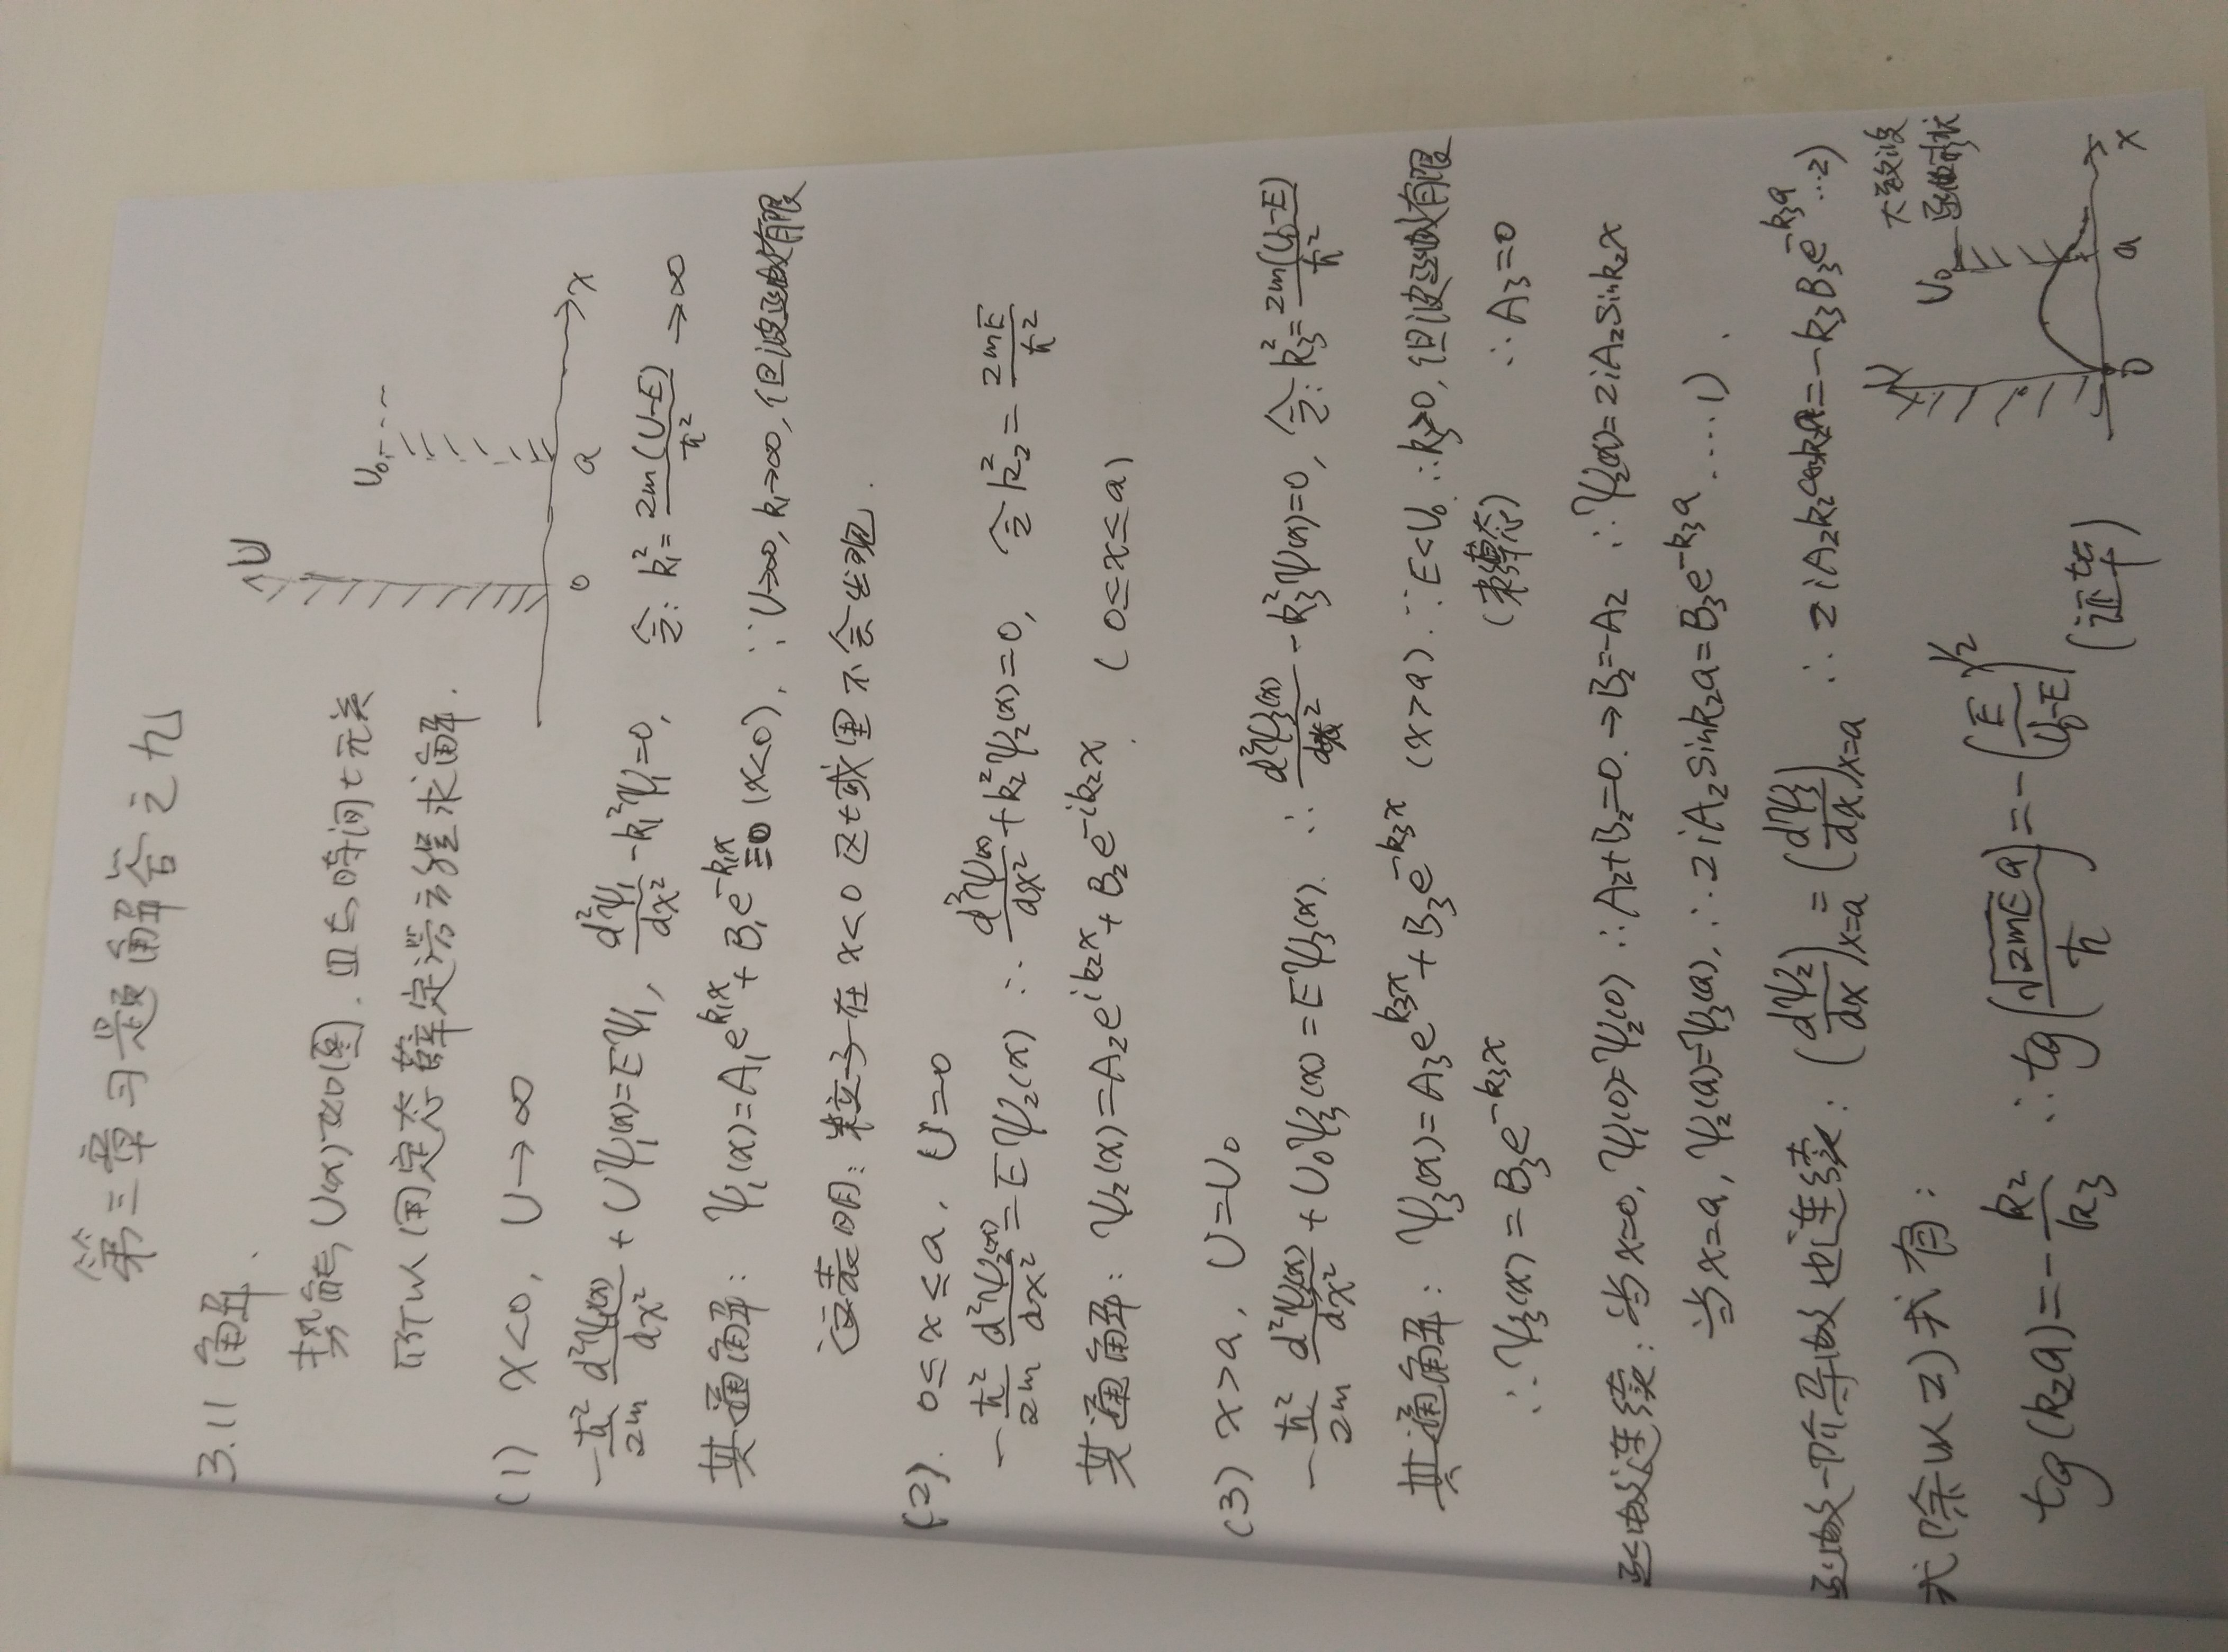 第三章习题解答之九
3.11 解.
势能与U(x)如图. 且与时间t无关
所以用定态薛定谔方程求解.
U
U₀
0 a x
(1) x<0, U→∞
-ħ²/2m d²ψ₁(x)/dx² + Uψ₁(x)=Eψ₁, d²ψ₁/dx² - k₁²ψ₁=0, 令: k₁²= 2m(U-E)/ħ² →∞
其通解: ψ₁(x)=A₁e^{k₁x} + B₁e^{-k₁x} ≡0 (x<0). ∵U→∞, k₁→∞, 但波函数有限
这表明: 粒子在x<0区域里不会出现.
(2). 0≤x≤a, U=0
-ħ²/2m d²ψ₂(x)/dx² = Eψ₂(x) ∴ d²ψ₂(x)/dx² + k₂²ψ₂(x)=0, 令k₂²= 2mE/ħ²
其通解: ψ₂(x)=A₂e^{ik₂x} + B₂e^{-ik₂x}. (0≤x≤a)
(3) x>a, U=U₀
-ħ²/2m d²ψ₃(x)/dx² + U₀ψ₃(x)=Eψ₃(x). ∴ d²ψ₃(x)/dx² - k₃²ψ(x)=0, 令: k₃²= 2m(U₀-E)/ħ²
其通解: ψ₃(x)=A₃e^{k₃x} + B₃e^{-k₃x} (x>a). ∵E<U₀ ∴k₃>0, 但波函数有限
∴ψ₃(x)=B₃e^{-k₃x} (束缚态) ∴A₃=0
函数连续: 当x=0, ψ₁(0)=ψ₂(0) ∴A₂+B₂=0. →B₂=-A₂ ∴ψ₂(x)=2iA₂Sink₂x
当x=a, ψ₂(a)=ψ₃(a), ∴2iA₂Sink₂a=B₃e^{-k₃a} ....1).
函数一阶导数也连续: (dψ₂/dx)x=a = (dψ₃/dx)x=a ∴ 2iA₂k₂cosk₂a=-k₃B₃e^{-k₃a} ...2)
式1除以2)式有:
tg(k₂a)=-k₂/k₃ ∴tg(√2mE a/ħ)=-(E/(U₀-E))^{1/2} (证毕)
大致波
函数形状
U
U₀
0 a x